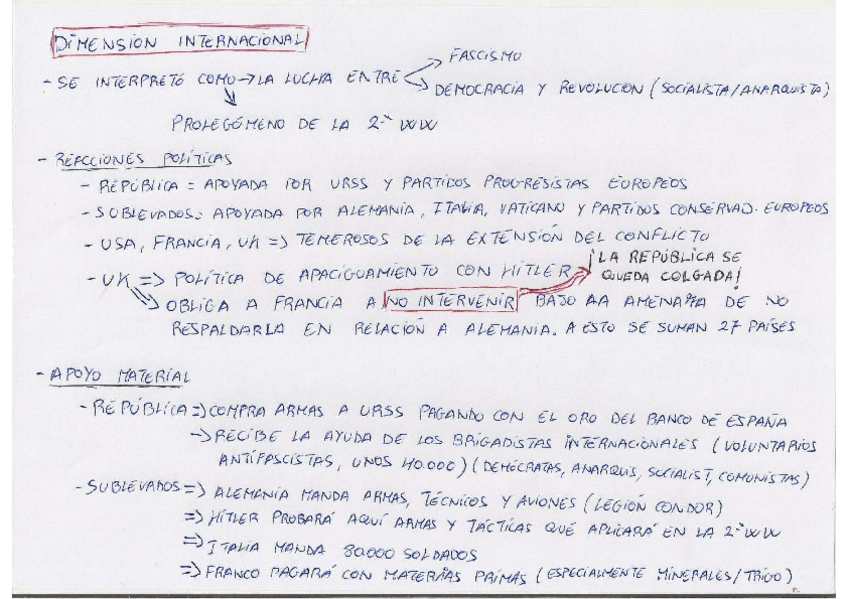 DIMENSION INTERNACIONAL
- SE INTERPRETÓ COMO → LA LUCHA ENTRE → FASCISMO
→ DEMOCRACIA Y REVOLUCION (SOCIALISTA/ANARQUISTA)
PROLEGÓMENO DE LA 2ª WW
- REACCIONES POLÍTICAS
- REPÚBLICA = APOYADA POR URSS Y PARTIDOS PROGRESISTAS EUROPEOS
- SUBLEVADOS = APOYADA POR ALEMANIA, ITALIA, VATICANO Y PARTIDOS CONSERVAD. EUROPEOS
- USA, FRANCIA, UK => TEMEROSOS DE LA EXTENSIÓN DEL CONFLICTO
- UK => POLÍTICA DE APACIGUAMIENTO CON HITLER → ¡LA REPÚBLICA SE QUEDA COLGADA!
=> OBLIGA A FRANCIA A NO INTERVENIR BAJO AA AMENAZA DE NO
RESPALDARLA EN RELACIÓN A ALEMANIA. A ESTO SE SUMAN 27 PAÍSES
- APOYO MATERIAL
- REPÚBLICA => COMPRA ARMAS A URSS PAGANDO CON EL ORO DEL BANCO DE ESPAÑA
→ RECIBE LA AYUDA DE LOS BRIGADISTAS INTERNACIONALES (VOLUNTARIOS
ANTIFASCISTAS, UNOS 40.000) (DEMÓCRATAS, ANARQUIS, SOCIALIST, COMUNISTAS)
- SUBLEVADOS => ALEMANIA MANDA ARMAS, TÉCNICOS Y AVIONES (LEGIÓN CONDOR)
=> HITLER PROBARÁ AQUÍ ARMAS Y TÁCTICAS QUE APLICARÁ EN LA 2ª WW
=> ITALIA MANDA 80.000 SOLDADOS
=> FRANCO PAGARÁ CON MATERIAS PRIMAS (ESPECIALMENTE MINERALES/TRIGO)